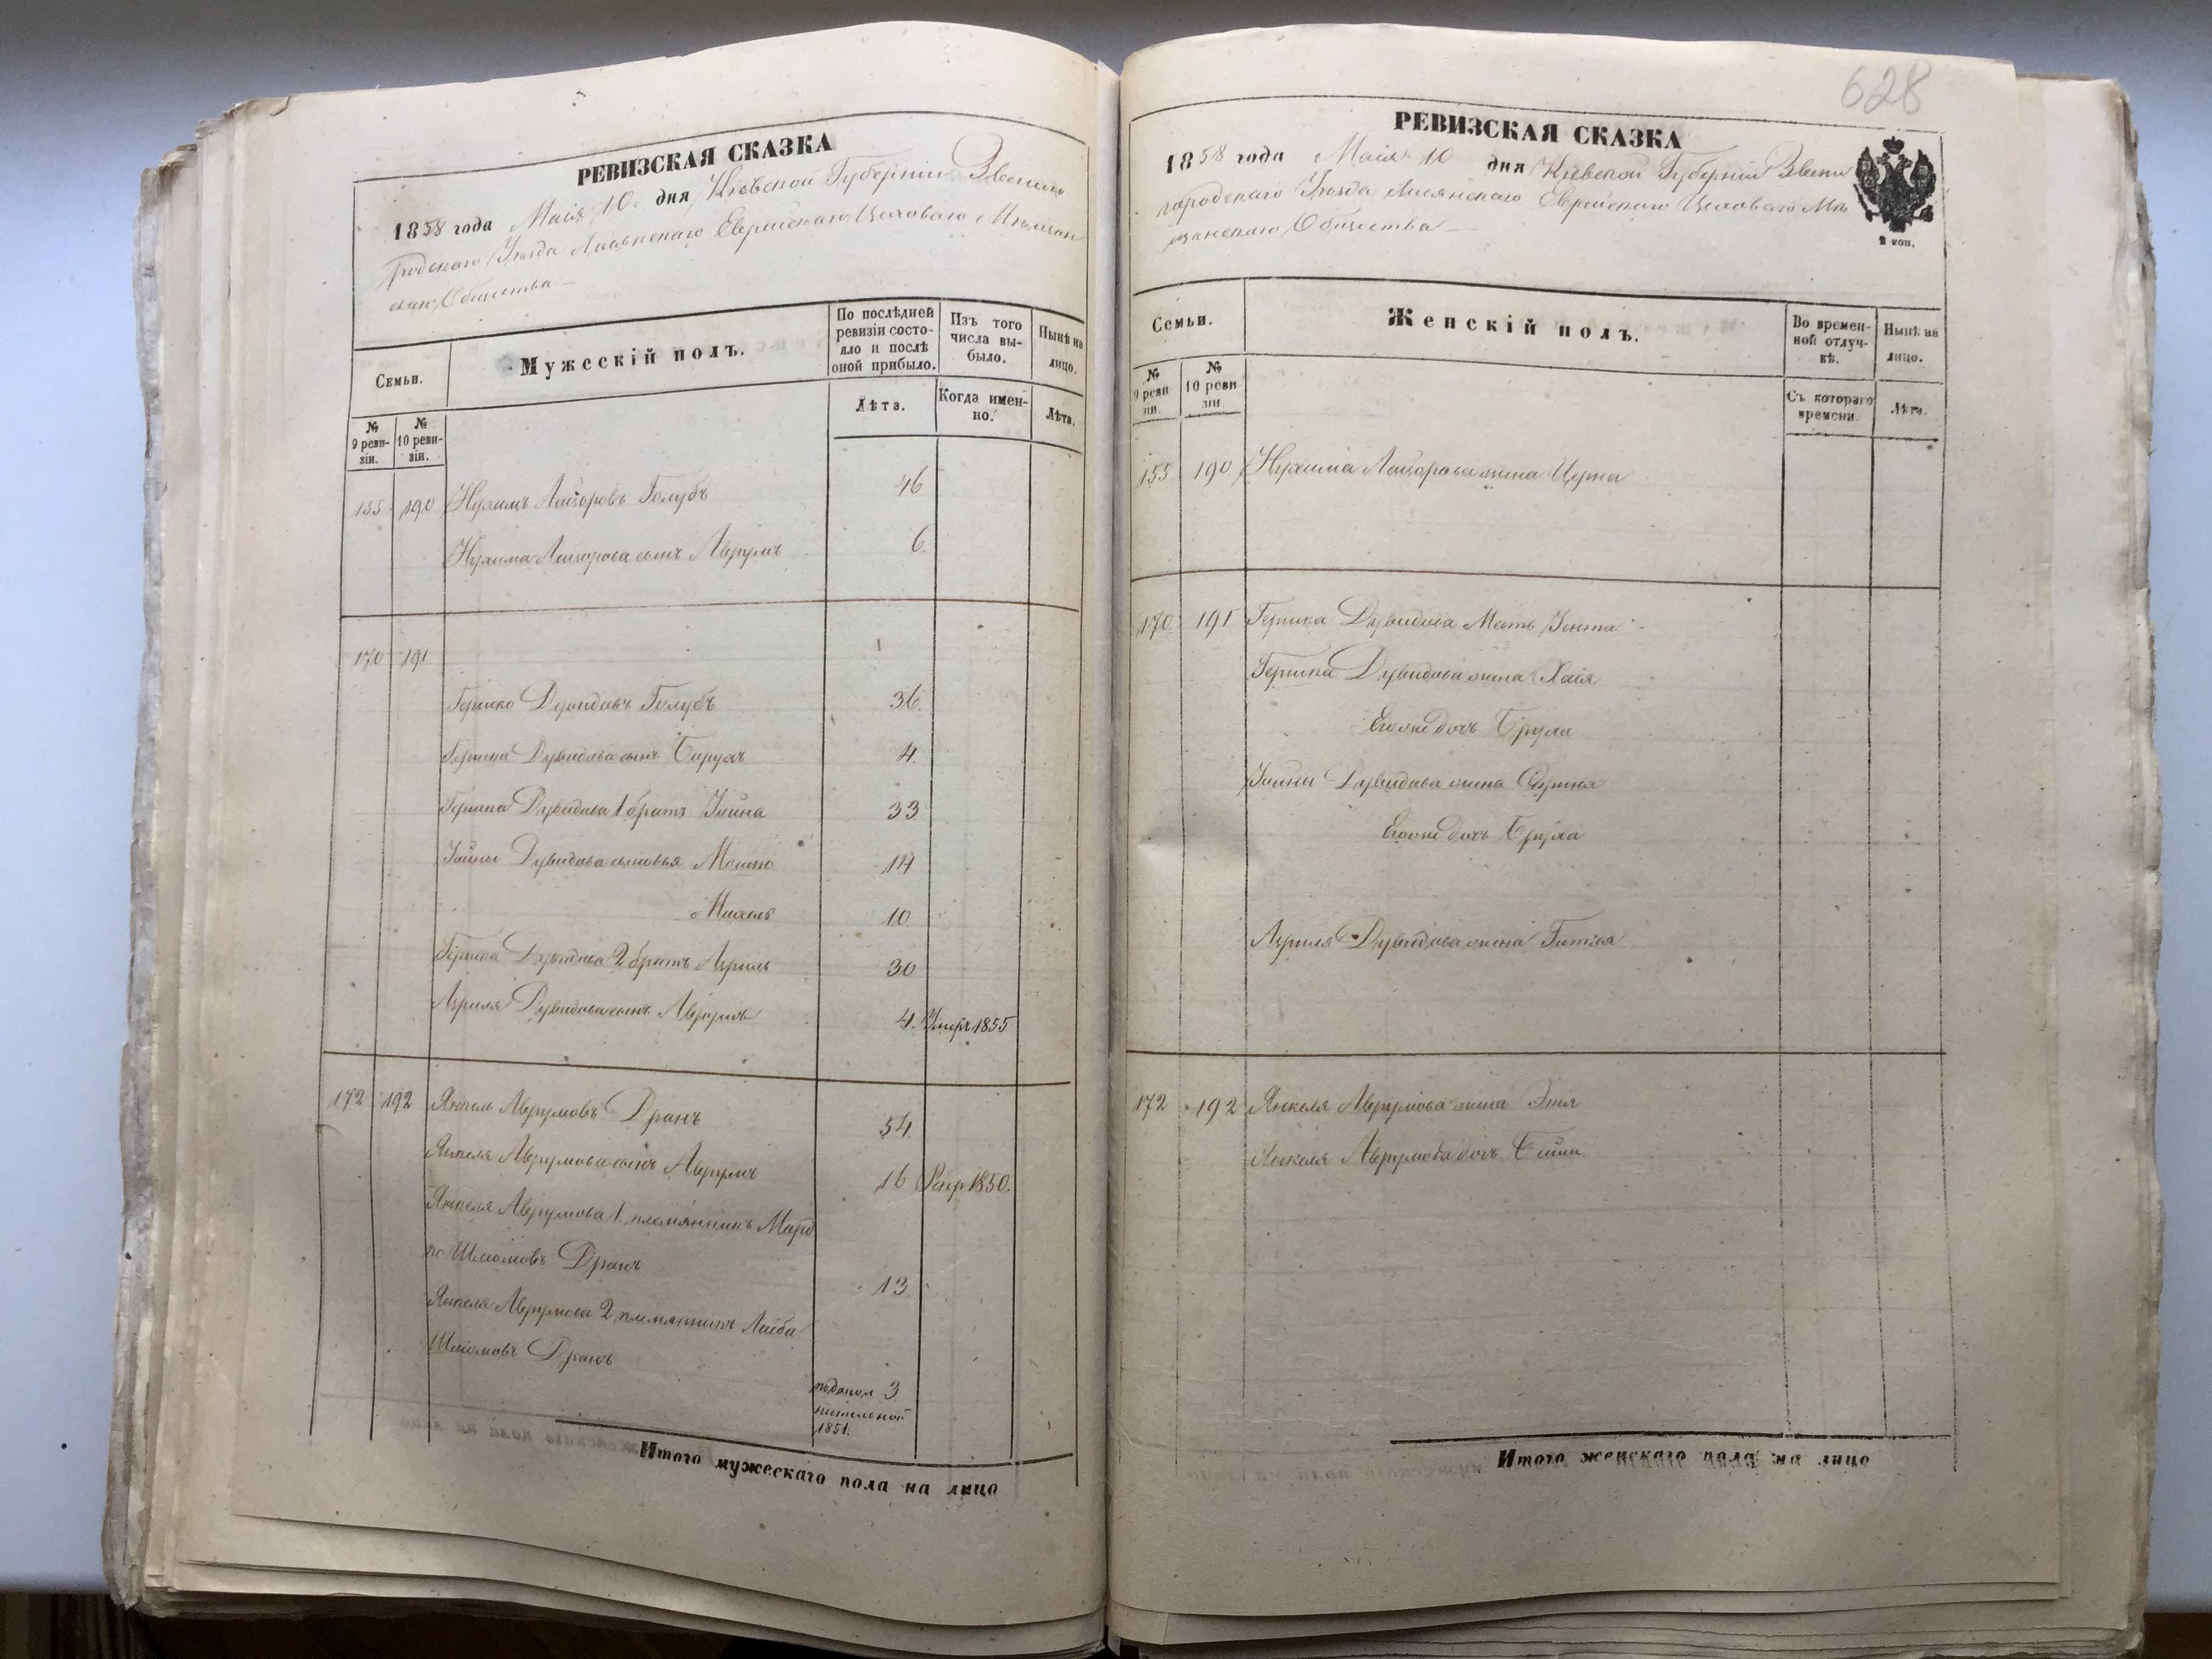 РЕВИЗСКАЯ СКАЗКА
1858 года Маія 10 дня Кіевской Губерніи Звениго
родскаго Уѣзда Лисянскаго Еврейскаго Цеховаго Мѣщан
скаго Общества
Семьи.
Мужескій полъ.
По послѣдней ревизіи состояло и послѣ оной прибыло.
Изъ того числа выбыло.
Нынѣ на лицо.
№ 9 ревизіи.
№ 10 ревизіи.
Лѣта.
Когда именно.
Лѣта.
155 190 Нухимъ Лейзоровъ Голубъ 46
Нухима Лейзорова сынъ Аврумъ 6
170 191
Гершко Дувидовъ Голубъ 36
Гершка Дувидова сынъ Борухъ 4
Гершка Дувидова 1 братъ Іойна 33
Іойны Дувидова сыновья Мошко 14
Михель 10
Гершка Дувидова 2 братъ Азриль 30
Азриля Дувидова сынъ Аврумъ 4 Умеръ 1855
172 192 Янкель Аврумовъ Дранъ 54
Янкеля Аврумова сынъ Аврумъ 16 Рекр 1850
Янкеля Аврумова 1 племянникъ Мард
ко Шлиомовъ Дранъ 13
Янкеля Аврумова 2 племянникъ Лейба
Шлиомовъ Дранъ
по допол 3
нительной
1851.
Итого мужескаго пола на лицо
628
РЕВИЗСКАЯ СКАЗКА
1858 года Маія 10 дня Кіевской Губерніи Звени
городскаго Уѣзда Лисянскаго Еврейскаго Цеховаго Мѣ
щанскаго Общества
2 коп.
Семьи.
Женскій полъ.
Во временной отлучкѣ.
Нынѣ на лицо.
№ 9 ревизіи.
№ 10 ревизіи.
Съ котораго времени.
Лѣта.
155 190 Нухима Лейзорова жена Церна
170 191 Гершка Дувидова Мать Іента
Гершка Дувидова жена Хаія
Его же дочь Бруха
Іойны Дувидова жена
Его же дочь Бруха
Азриля Дувидова жена Гитля
172 192 Янкеля Аврумова жена Этя
Янкеля Аврумова дочь
Итого женскаго пола на лицо